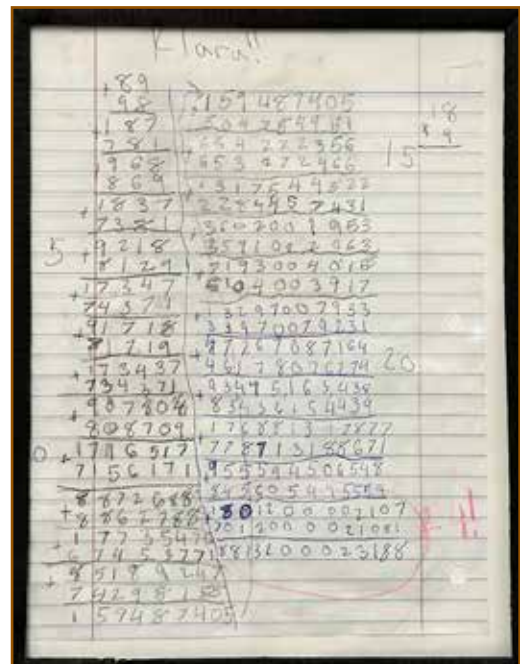 Klara!!
+89
98
187
781
968
869
+1837
7381
5
+9218
8129
+17347
74371
+91718
81719
+173437
734371
+907808
808709
0
+1716517
7156171
8872688
+8862788
17735476
+67453771
+85189247
74298158
159487405
159487405
504784951
664272356
+653272466
1317544822
2284457131
3602001953
3591002063
7193004016
6104003917
+13297007933
33970079231
+47267087164
46178076274
20
+93445163438
83436154439
+176881317877
778713188671
+955594506548
845605495559
+1801200002107
7012000021081
8813200023188
18
+9
15